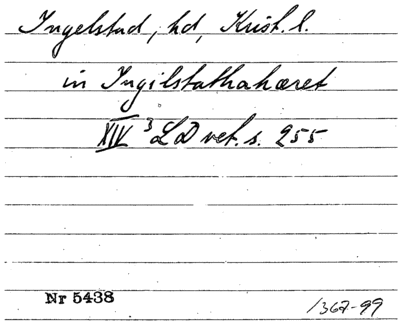 Ingelstad, hd, Krist. l.
in Ingilstathahæret
XIV 3 LD vet. s. 255
Nr 5438
1367-99